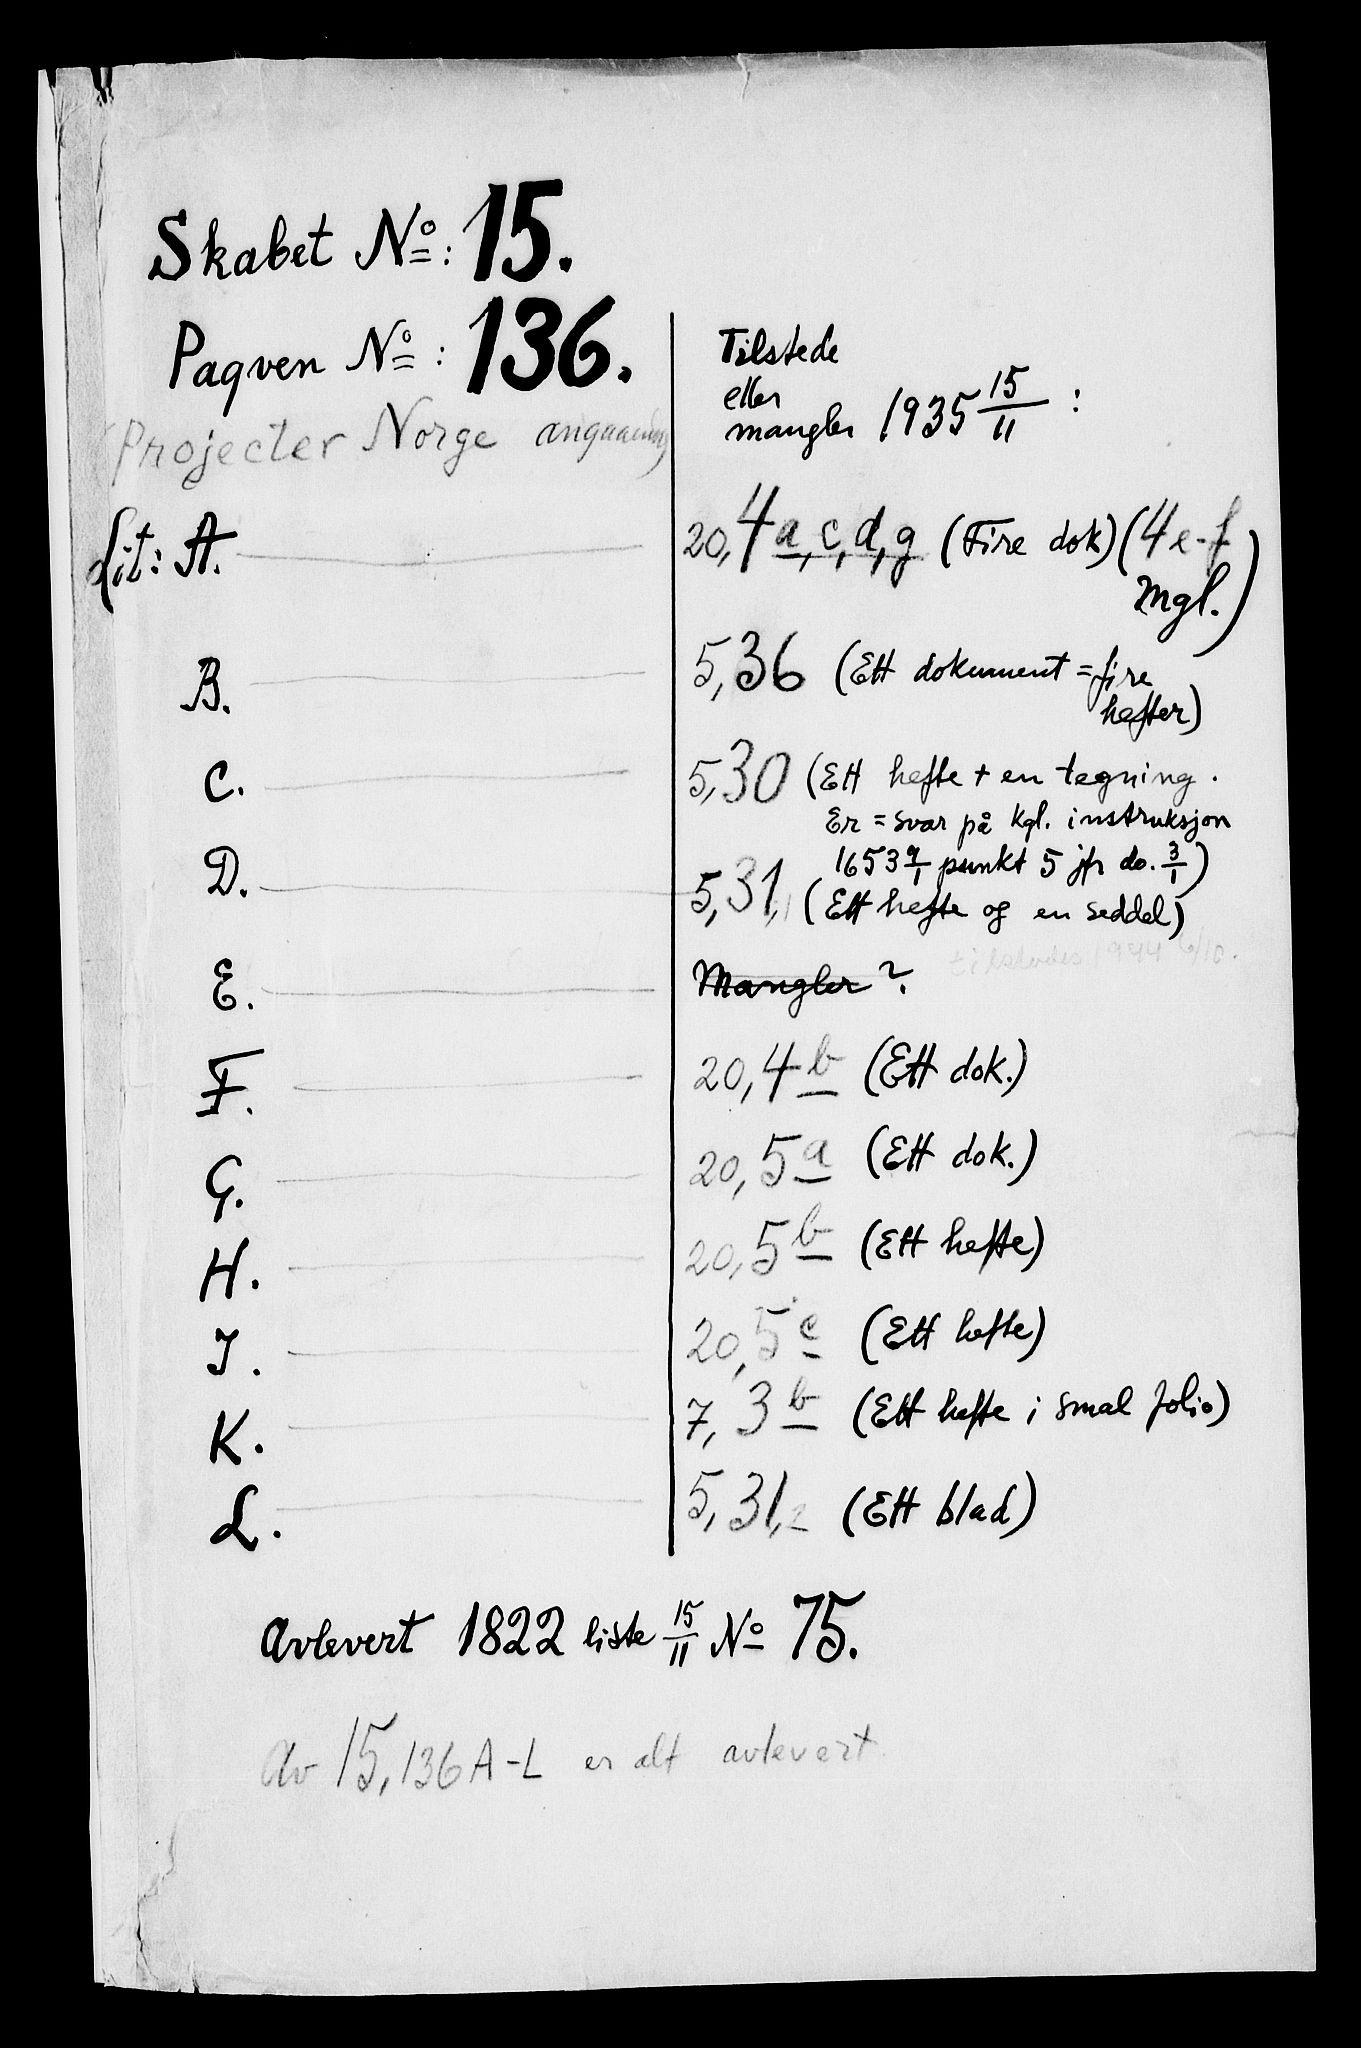 Skabet No: 15.
Paqven No: 136.
(Projecter Norge angaaende)
Tilstede
eller
mangler 1935 15/11 :
Lit: A. 20,4 a, c, d, g (Fire dok) (4 e-f
mgl.)
B. 5,36 (Ett dokument = fire
hefter)
C. 5,30 (Ett hefte + en tegning.
Er = svar på kgl. instruksjon
1653 9/1 punkt 5 jfr do. 3/1)
D. 5,31,1 (Ett hefte og en seddel)
tilstedes 1944 6/10.
E. Mangler ?
F. 20,4 b (Ett dok.)
G. 20,5 a (Ett dok.)
H. 20,5 b (Ett hefte)
I. 20,5 c (Ett hefte)
K. 7,3 b (Ett hefte i smal folio)
L. 5,31,2 (Ett blad)
Avlevert 1822 liste 15/11 No 75.
Av 15,136 A-L er alt avlevert